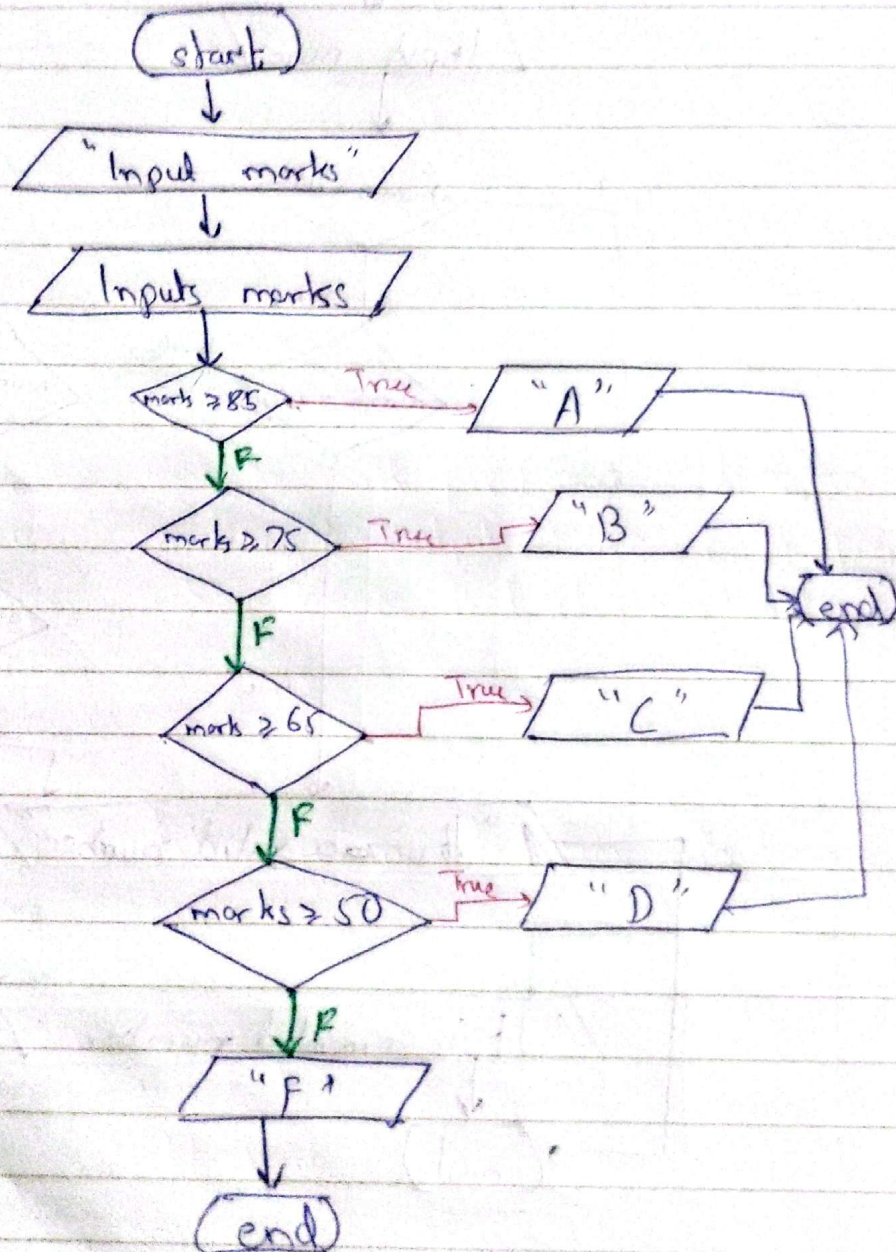 start
"Input marks"
Inputs markss
mark ≥ 85 True "A"
F
marks ≥ 75 True "B"
end
F
mark ≥ 65 True "C"
F
marks ≥ 50 True "D"
F
"F"
end